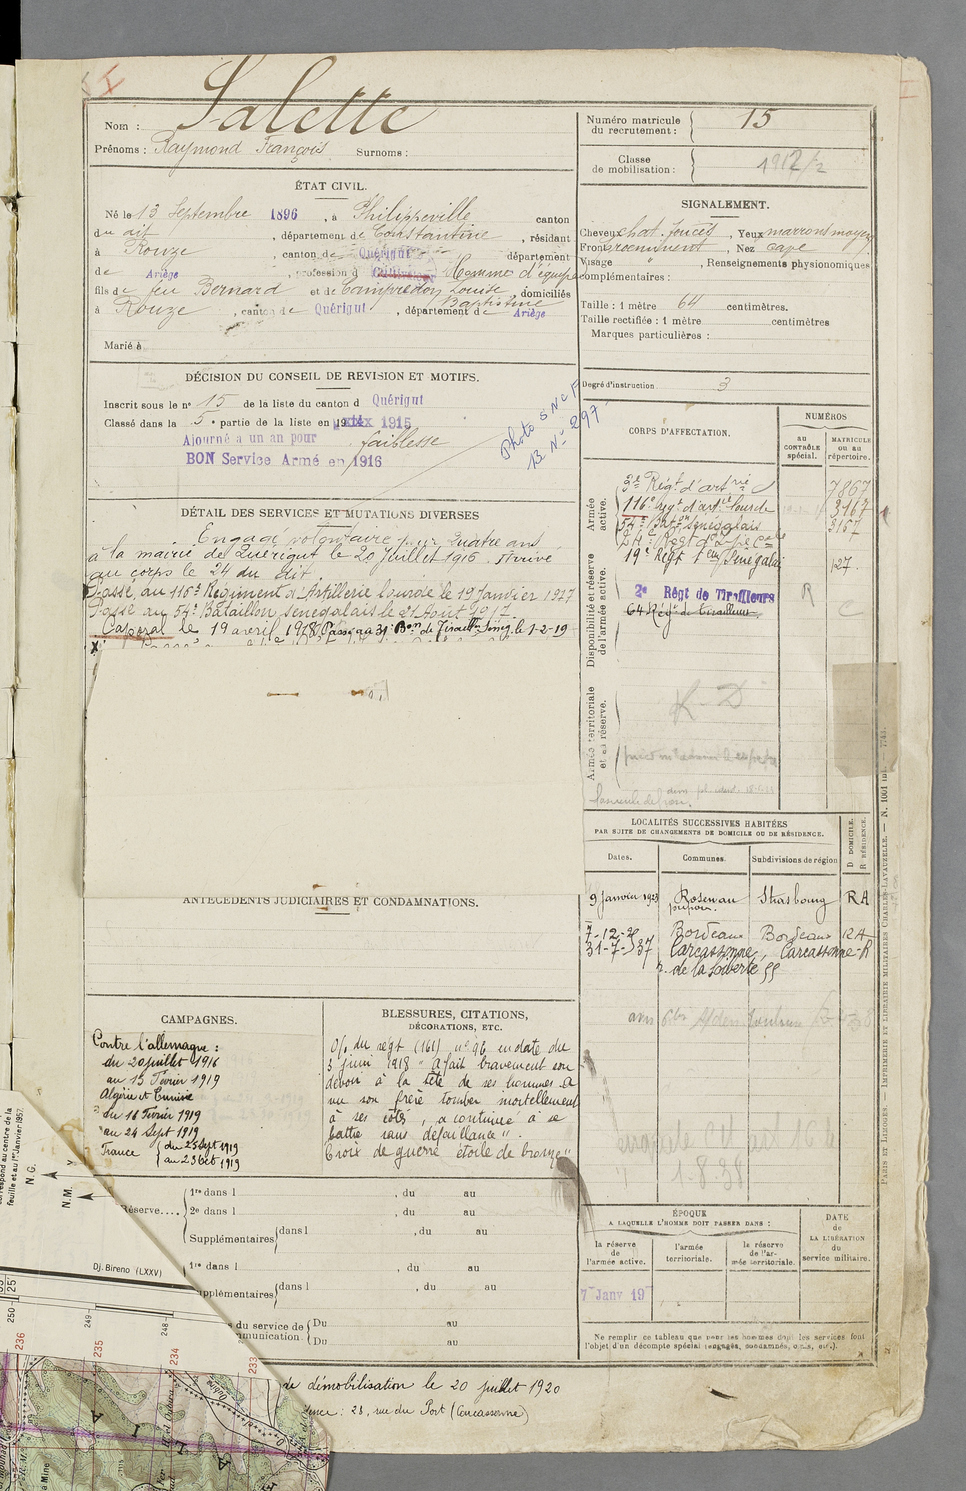 Nom : Salette
Prénoms : Raymond François Surnoms :
ÉTAT CIVIL.
Né le 13 Septembre 1896, à Philippeville canton
du dit, département de Constantine, résidant
à Rouze, canton de Quérigut département
de Ariège, profession d Homme d'équipe
fils de feu Bernard et de Campredon Louise Baptistine, domiciliés
à Rouze, canton de Quérigut, département de Ariège
Marié à
DÉCISION DU CONSEIL DE REVISION ET MOTIFS.
Inscrit sous le n° 15 de la liste du canton d Quérigut
Classé dans la 5e partie de la liste en 1915
Ajourné a un an pour faiblesse
BON Service Armé en 1916
Photo S N C F
B N° 297
DÉTAIL DES SERVICES ET MUTATIONS DIVERSES
Engagé volontaire pour quatre ans
à la mairie de Quérigut le 20 Juillet 1916. Arrivé
au corps le 24 du dit.
Passé au 116e Régiment d'Artillerie lourde le 19 Janvier 1917
Passé au 54e Bataillon Sénégalais le 21 Août 1917
Caporal le 19 avril 1918. Passé au 31e Bon de Tiraillrs Sénég. le 1-2-19
ANTÉCÉDENTS JUDICIAIRES ET CONDAMNATIONS.
CAMPAGNES.
Contre l'allemagne :
du 20 juillet 1916
au 15 Février 1919
Algérie et Tunisie
du 16 Février 1919
au 24 Sept 1919
France du 25 Sept 1919
au 23 Oct 1919
BLESSURES, CITATIONS,
DÉCORATIONS, ETC.
O/. du régt (161) n° 96 en date du
3 juin 1918 " A fait bravement son
devoir à la tête de ses hommes. A
vu son frère tomber mortellement
à ses côtés, a continué à se
battre sans défaillance ".
Croix de guerre étoile de bronze "
Réserve....
1re dans l , du au
2e dans l , du au
Supplémentaires dans l , du au
1re dans l , du au
pplémentaires dans l , du au
s du service de Du au
mmunication. Du au
de démobilisation le 20 juillet 1920
dence : 28, rue du Port (Carcassonne)
Numéro matricule
du recrutement : 15
Classe
de mobilisation : 1912/2
SIGNALEMENT.
Cheveux chat. foncés, Yeux marrons moyens
Front proéminent, Nez cave
Visage " , Renseignements physionomiques
complémentaires :
Taille : 1 mètre 64 centimètres.
Taille rectifiée : 1 mètre centimètres
Marques particulières :
Degré d'instruction 3
CORPS D'AFFECTATION.
NUMÉROS
AU CONTRÔLE spécial.
MATRICULE ou au répertoire.
Armée active.
3e Régt d'artrie 7867
116e régt d'artie lourde 3167
54e Batn Sénégalais 3167
24e Régt d'Infie Cale
19e Régt Teurs Sénégalais 127
Disponibilité et réserve de l'armée active.
2e Régt de Tirailleurs R
64 Régt de tirailleurs. C
Armée territoriale et sa réserve.
K. D
LOCALITÉS SUCCESSIVES HABITÉES
PAR SUITE DE CHANGEMENTS DE DOMICILE OU DE RÉSIDENCE.
D DOMICILE.
R RÉSIDENCE.
Dates. Communes. Subdivisions de région
9 Janvier 1923 Rosenau Strasbourg RA
7-12- Bordeaux Bordeaux RA
31-7-37 Carcassonne, Carcassonne-R
r. de la Liberté 55
1.8.38
ÉPOQUE
A LAQUELLE L'HOMME DOIT PASSER DANS :
DATE de LA LIBÉRATION du service militaire.
la réserve de l'armée active.
l'armée territoriale.
la réserve de l'armée territoriale.
7 Janv 19
Ne remplir ce tableau que pour les hommes dont les services font
l'objet d'un décompte spécial (engagés, condamnés, omis, etc.).
PARIS ET LIMOGES. — IMPRIMERIE ET LIBRAIRIE MILITAIRES CHARLES-LAVAUZELLE. — N. 1001 int. — 7743.
correspond au centre de la
feuille et au 1er Janvier 1957.
N.G.
N.M.
Dj. Bireno (LXXV)
25'
250
249
248
236
235
234
233